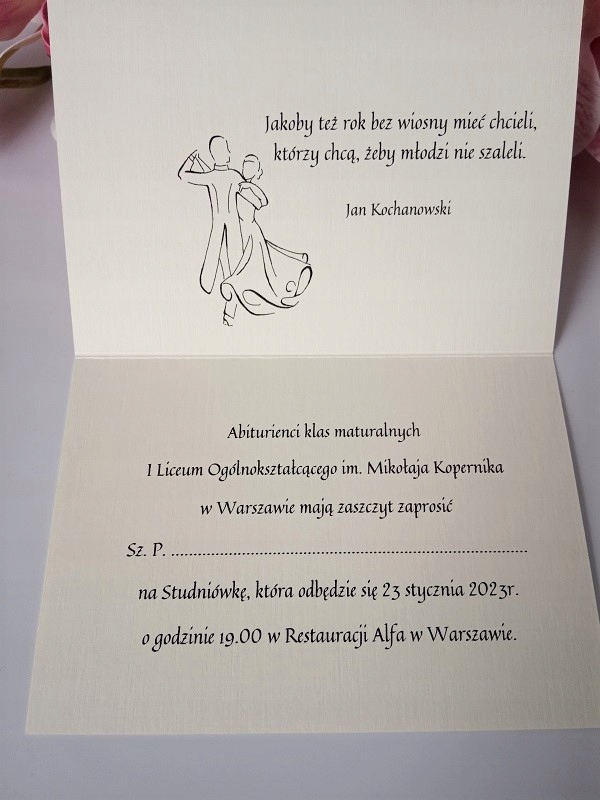 Jakoby też rok bez wiosny mieć chcieli,
którzy chcą, żeby młodzi nie szaleli.
Jan Kochanowski
Abiturienci klas maturalnych
I Liceum Ogólnokształcącego im. Mikołaja Kopernika
w Warszawie mają zaszczyt zaprosić
Sz. P. ................................................................................
na Studniówkę, która odbędzie się 23 stycznia 2023r.
o godzinie 19.00 w Restauracji Alfa w Warszawie.